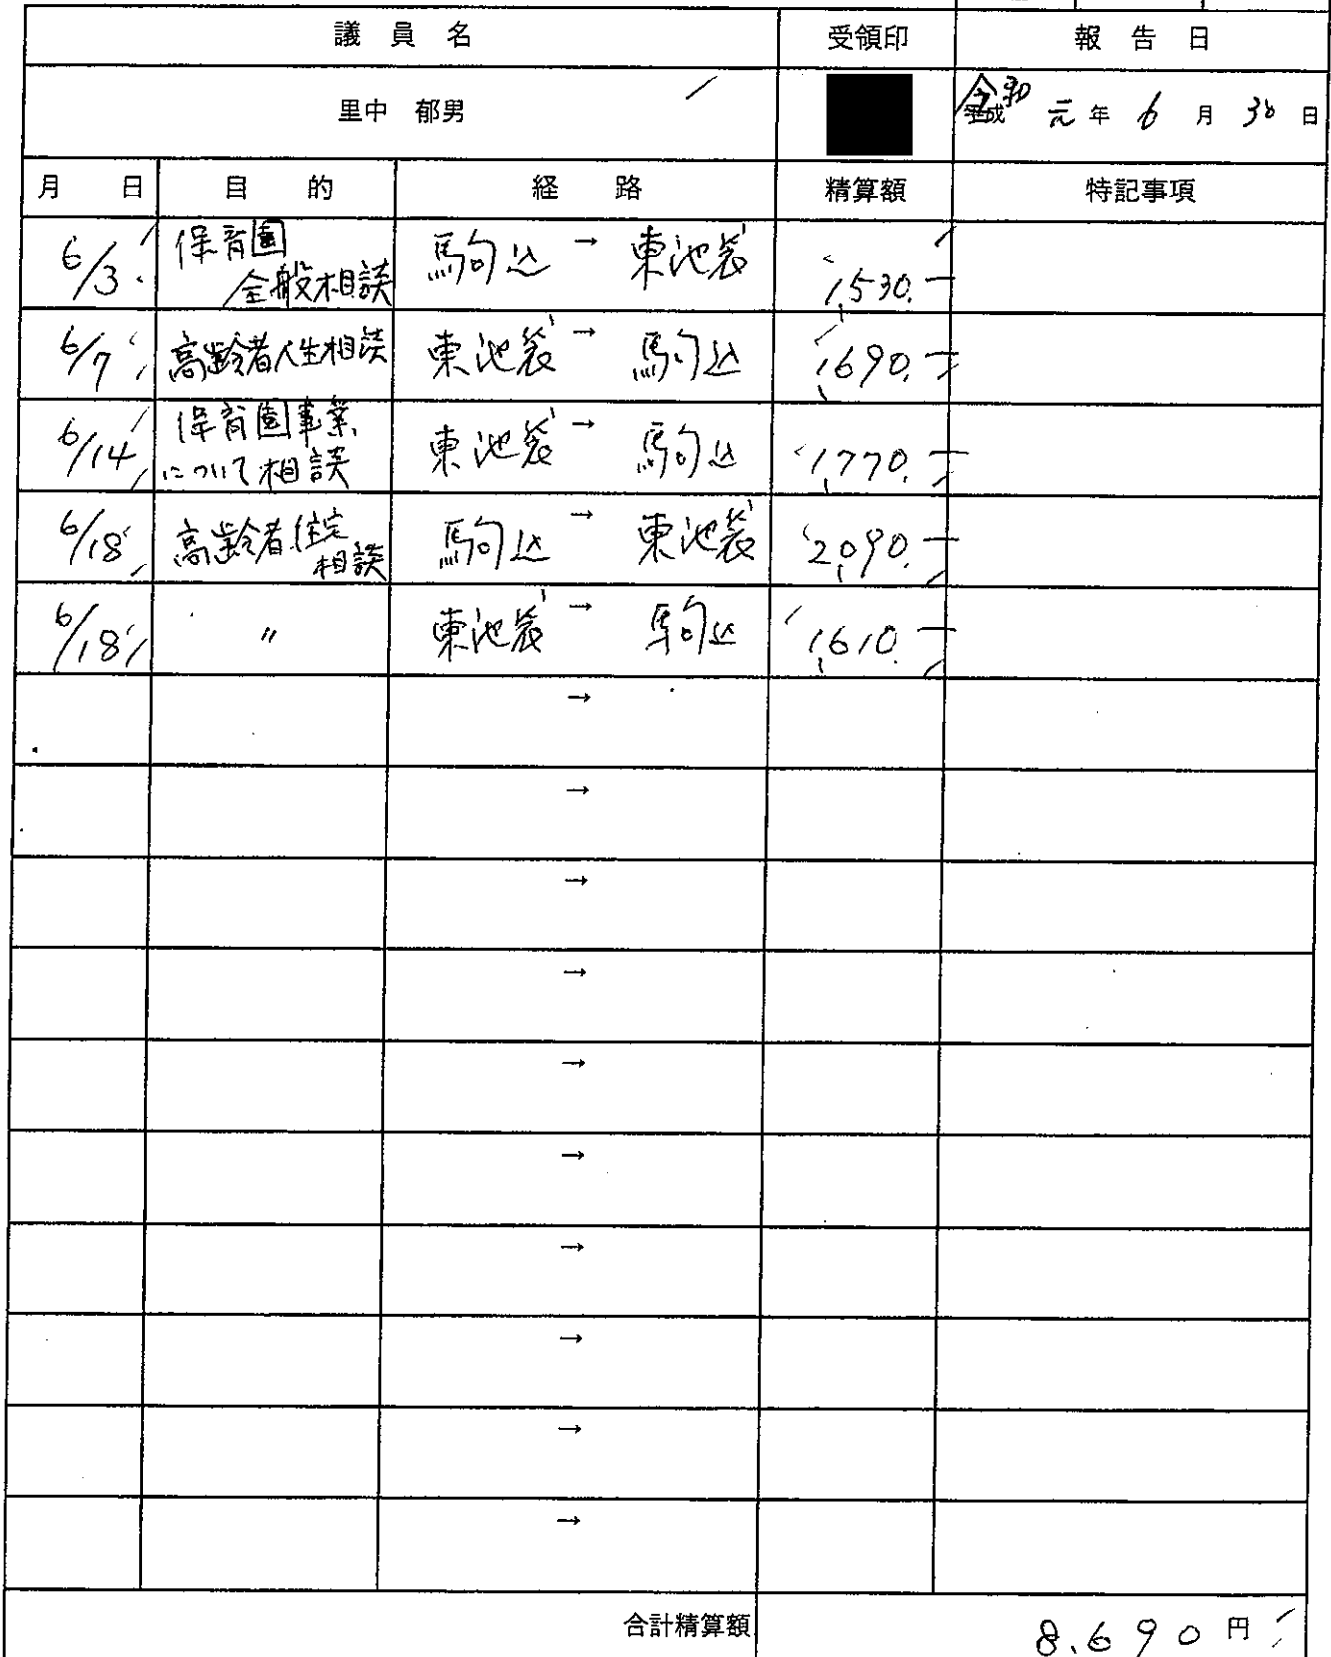 議員名 受領印 報告日
里中 郁男 平成 令和 元年 6月 30日
月 日 目 的 経 路 精算額 特記事項
6/3 保育園 全般相談 駒込 → 東池袋 1,530.-
6/7 高齢者人生相談 東池袋 → 駒込 1,690.-
6/14 保育園事業 について相談 東池袋 → 駒込 1,770.-
6/18 高齢者住宅 相談 駒込 → 東池袋 2,090.-
6/18 〃 東池袋 → 駒込 1,610.-
→
→
→
→
→
→
→
→
→
→
合計精算額 8.690円